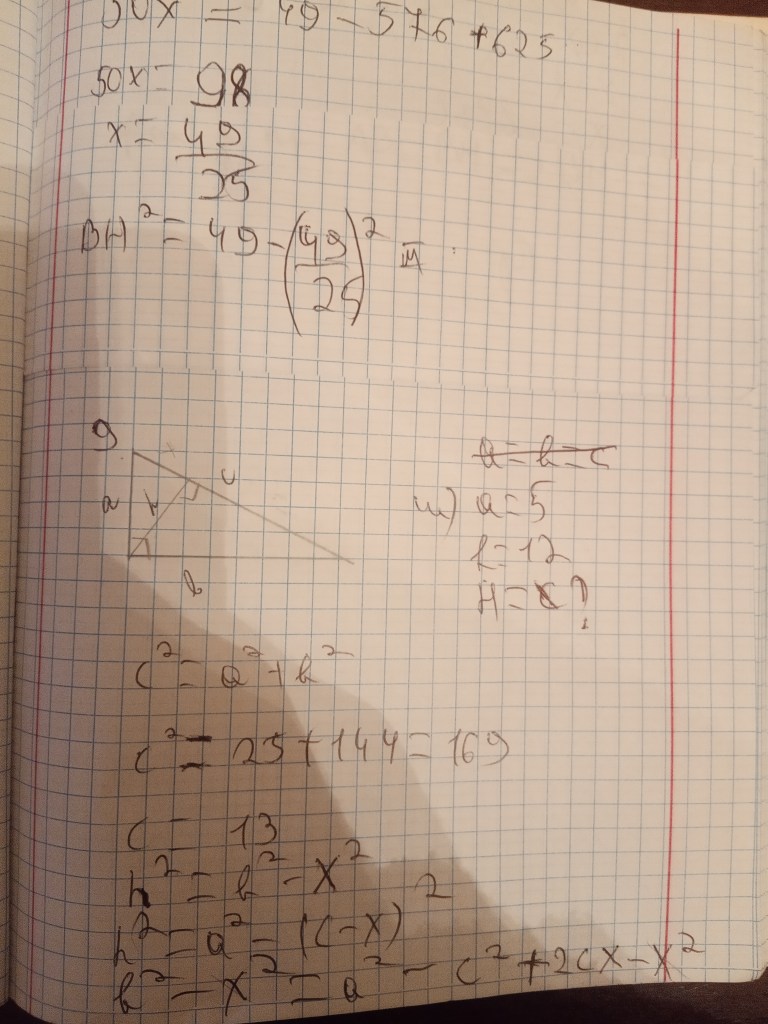 50x = 49 - 576 + 625
50x = 98
x = 49/25
BH² = 49 - (49/25)² =
g
a
h
c
b
a = b = c
ш) a = 5
b = 12
H = ?
c² = a² + b²
c² = 25 + 144 = 169
c = 13
h² = b² - x²
h² = a² - (c - x)²
b² - x² = a² - c² + 2cx - x²